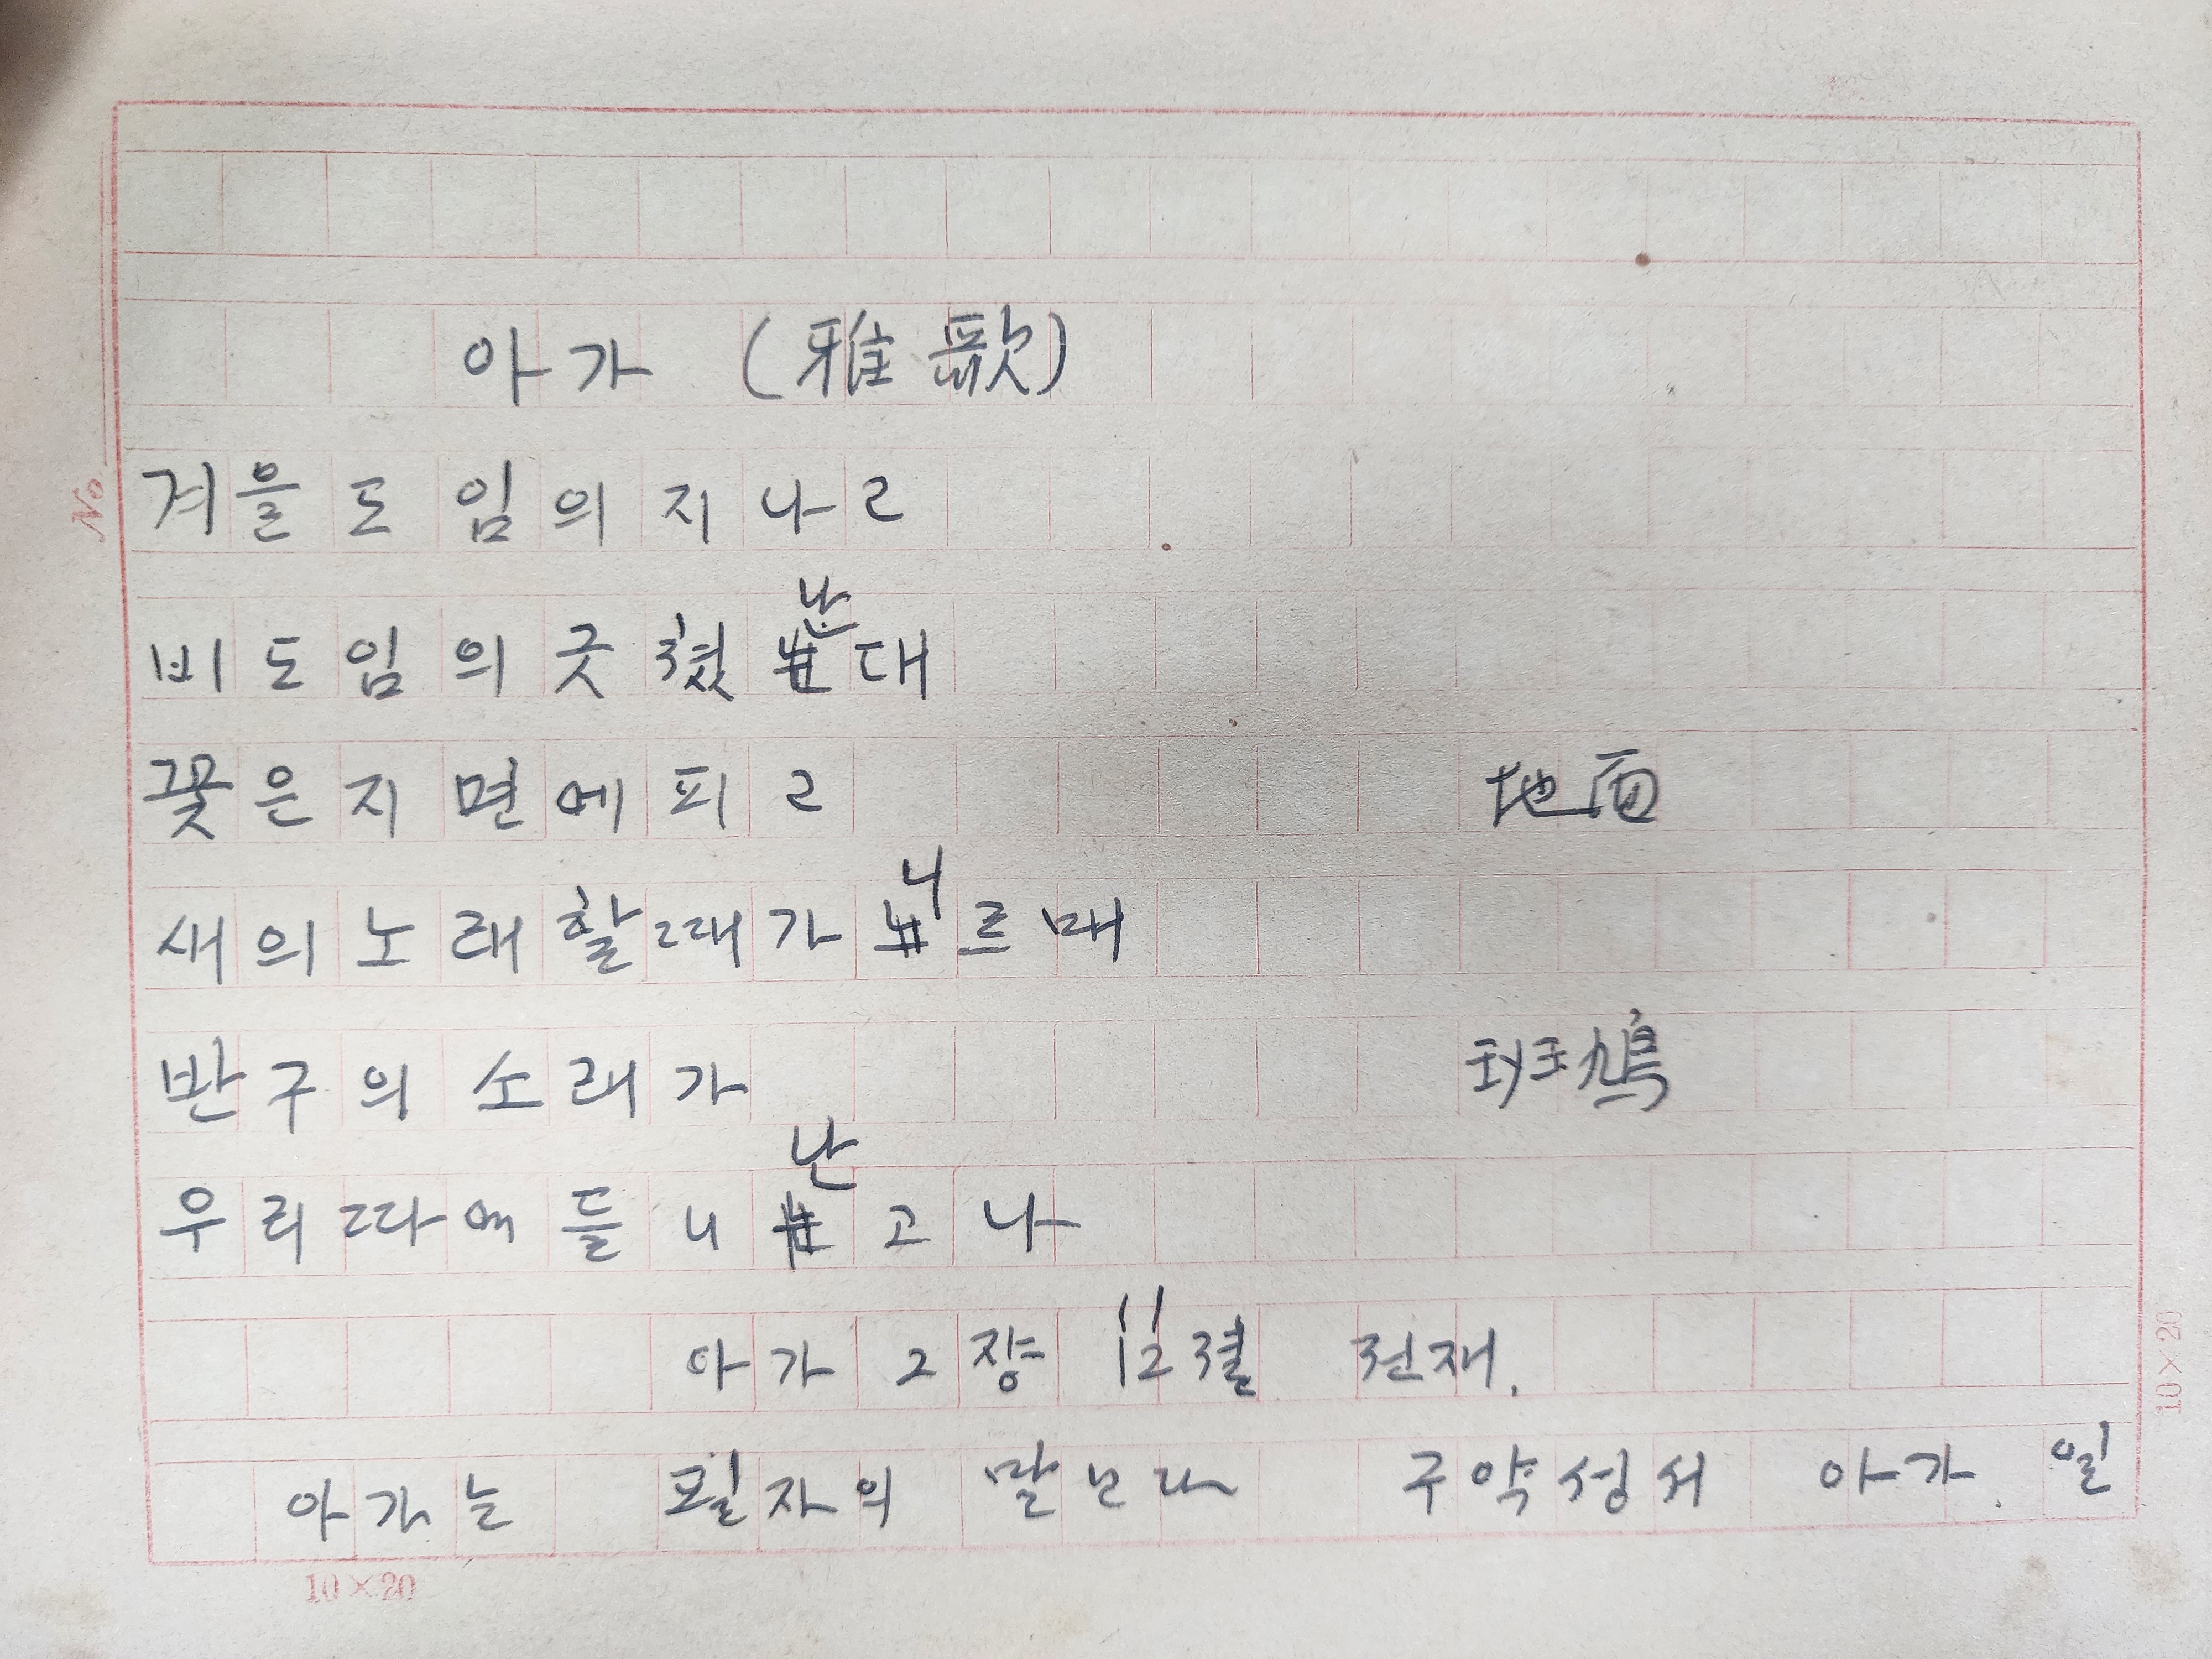 아가 (雅歌)
겨을도 임의 지나고
비도 임의 굿쳤난대
꽃은 지면에 피고 地面
새의 노래할 때가 니르매
반구의 소래가 班鳩
우리 따에 들니난고나
아가 2장 11 12절 전재.
아가는 필자의 말보다 구약성서 아가. 일
No.
10×20
10×20